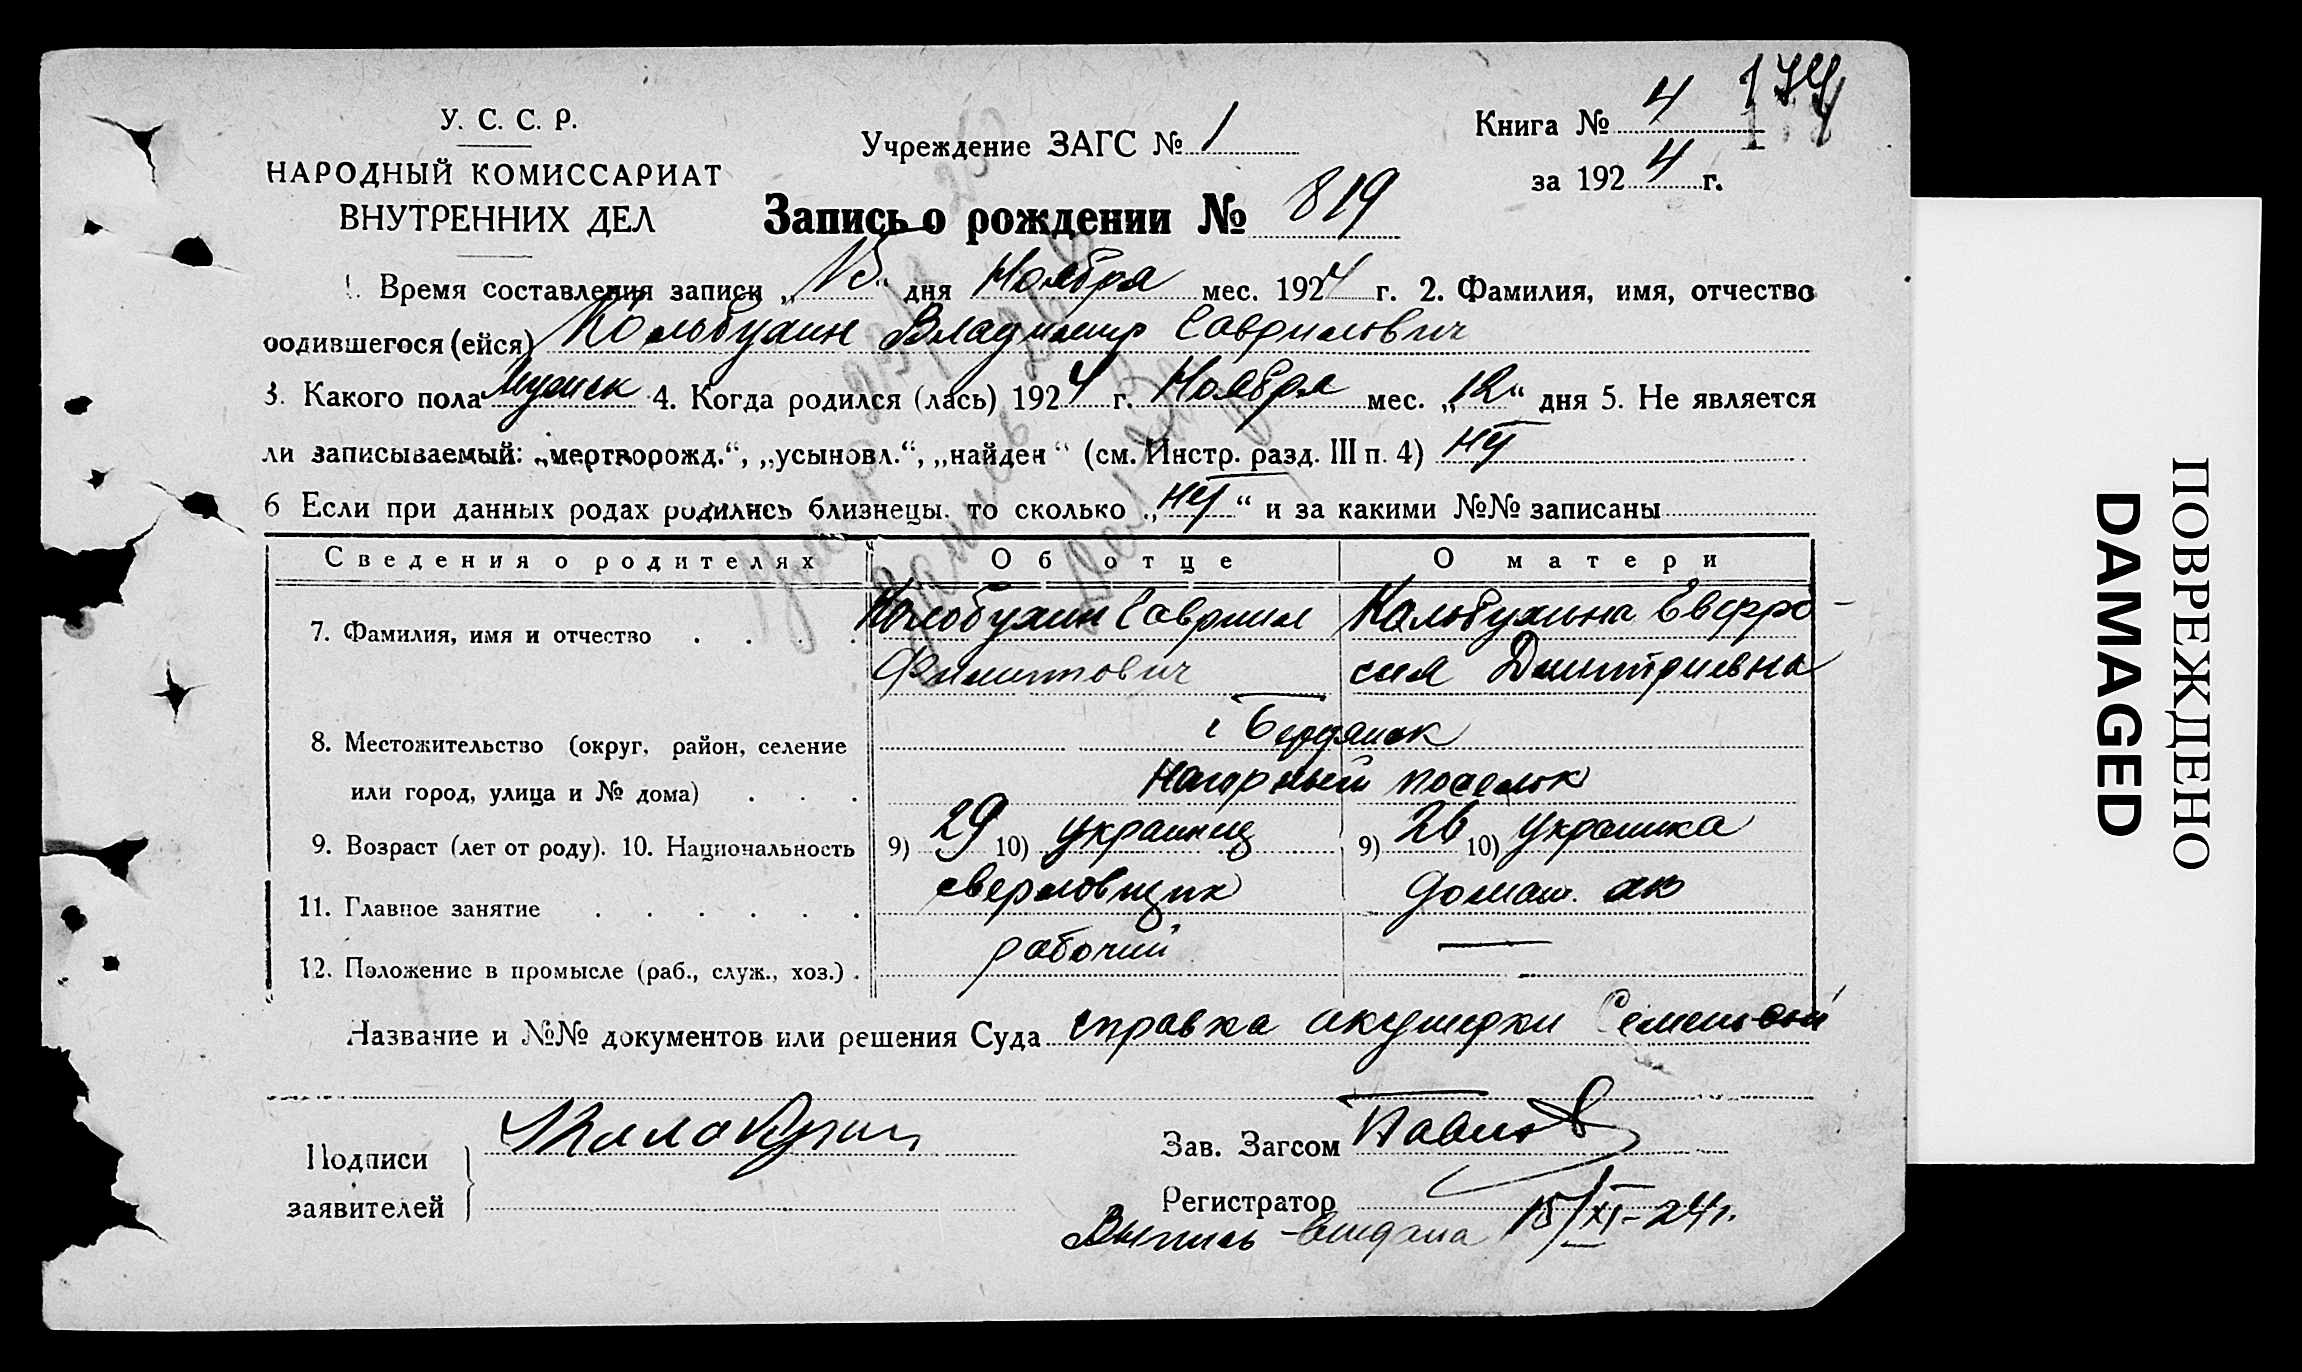 У. С. С. Р.
НАРОДНЫЙ КОМИССАРИАТ
ВНУТРЕННИХ ДЕЛ
Учреждение ЗАГС № 1
Книга № 4
174
за 1924 г.
Запись о рождении № 819
1. Время составления записи „15“ дня Ноября мес. 1924 г. 2. Фамилия, имя, отчество
родившегося (ейся) Кольбухин Владимир Гаврилович
3. Какого пола мужск 4. Когда родился (лась) 1924 г. Ноября мес. „12“ дня 5. Не является
ли записываемый: „мертворожд.“, „усыновл.“, „найден“ (см. Инстр. разд. III п. 4) нет
6 Если при данных родах родились близнецы. то сколько „нет“ и за какими №№ записаны
Сведения о родителях Об отце О матери
7. Фамилия, имя и отчество Колобухин Гавриил Кольбухина Евфро-
Филиппович сия Дмитриевна
8. Местожительство (округ, район, селение г Бердянск
или город, улица и № дома) Нагорный поселок
9. Возраст (лет от роду). 10. Национальность 9) 29 10) украинец 9) 26 10) украинка
11. Главное занятие сверловщик домаш. хоз
12. Положение в промысле (раб., служ., хоз.) рабочий —
Название и №№ документов или решения Суда справка акушерки Семеновой
Подписи
заявителей
Зав. Загсом Павлов
Регистратор
Выпись выдана 15/XI-24г.
ПОВРЕЖДЕНО
DAMAGED